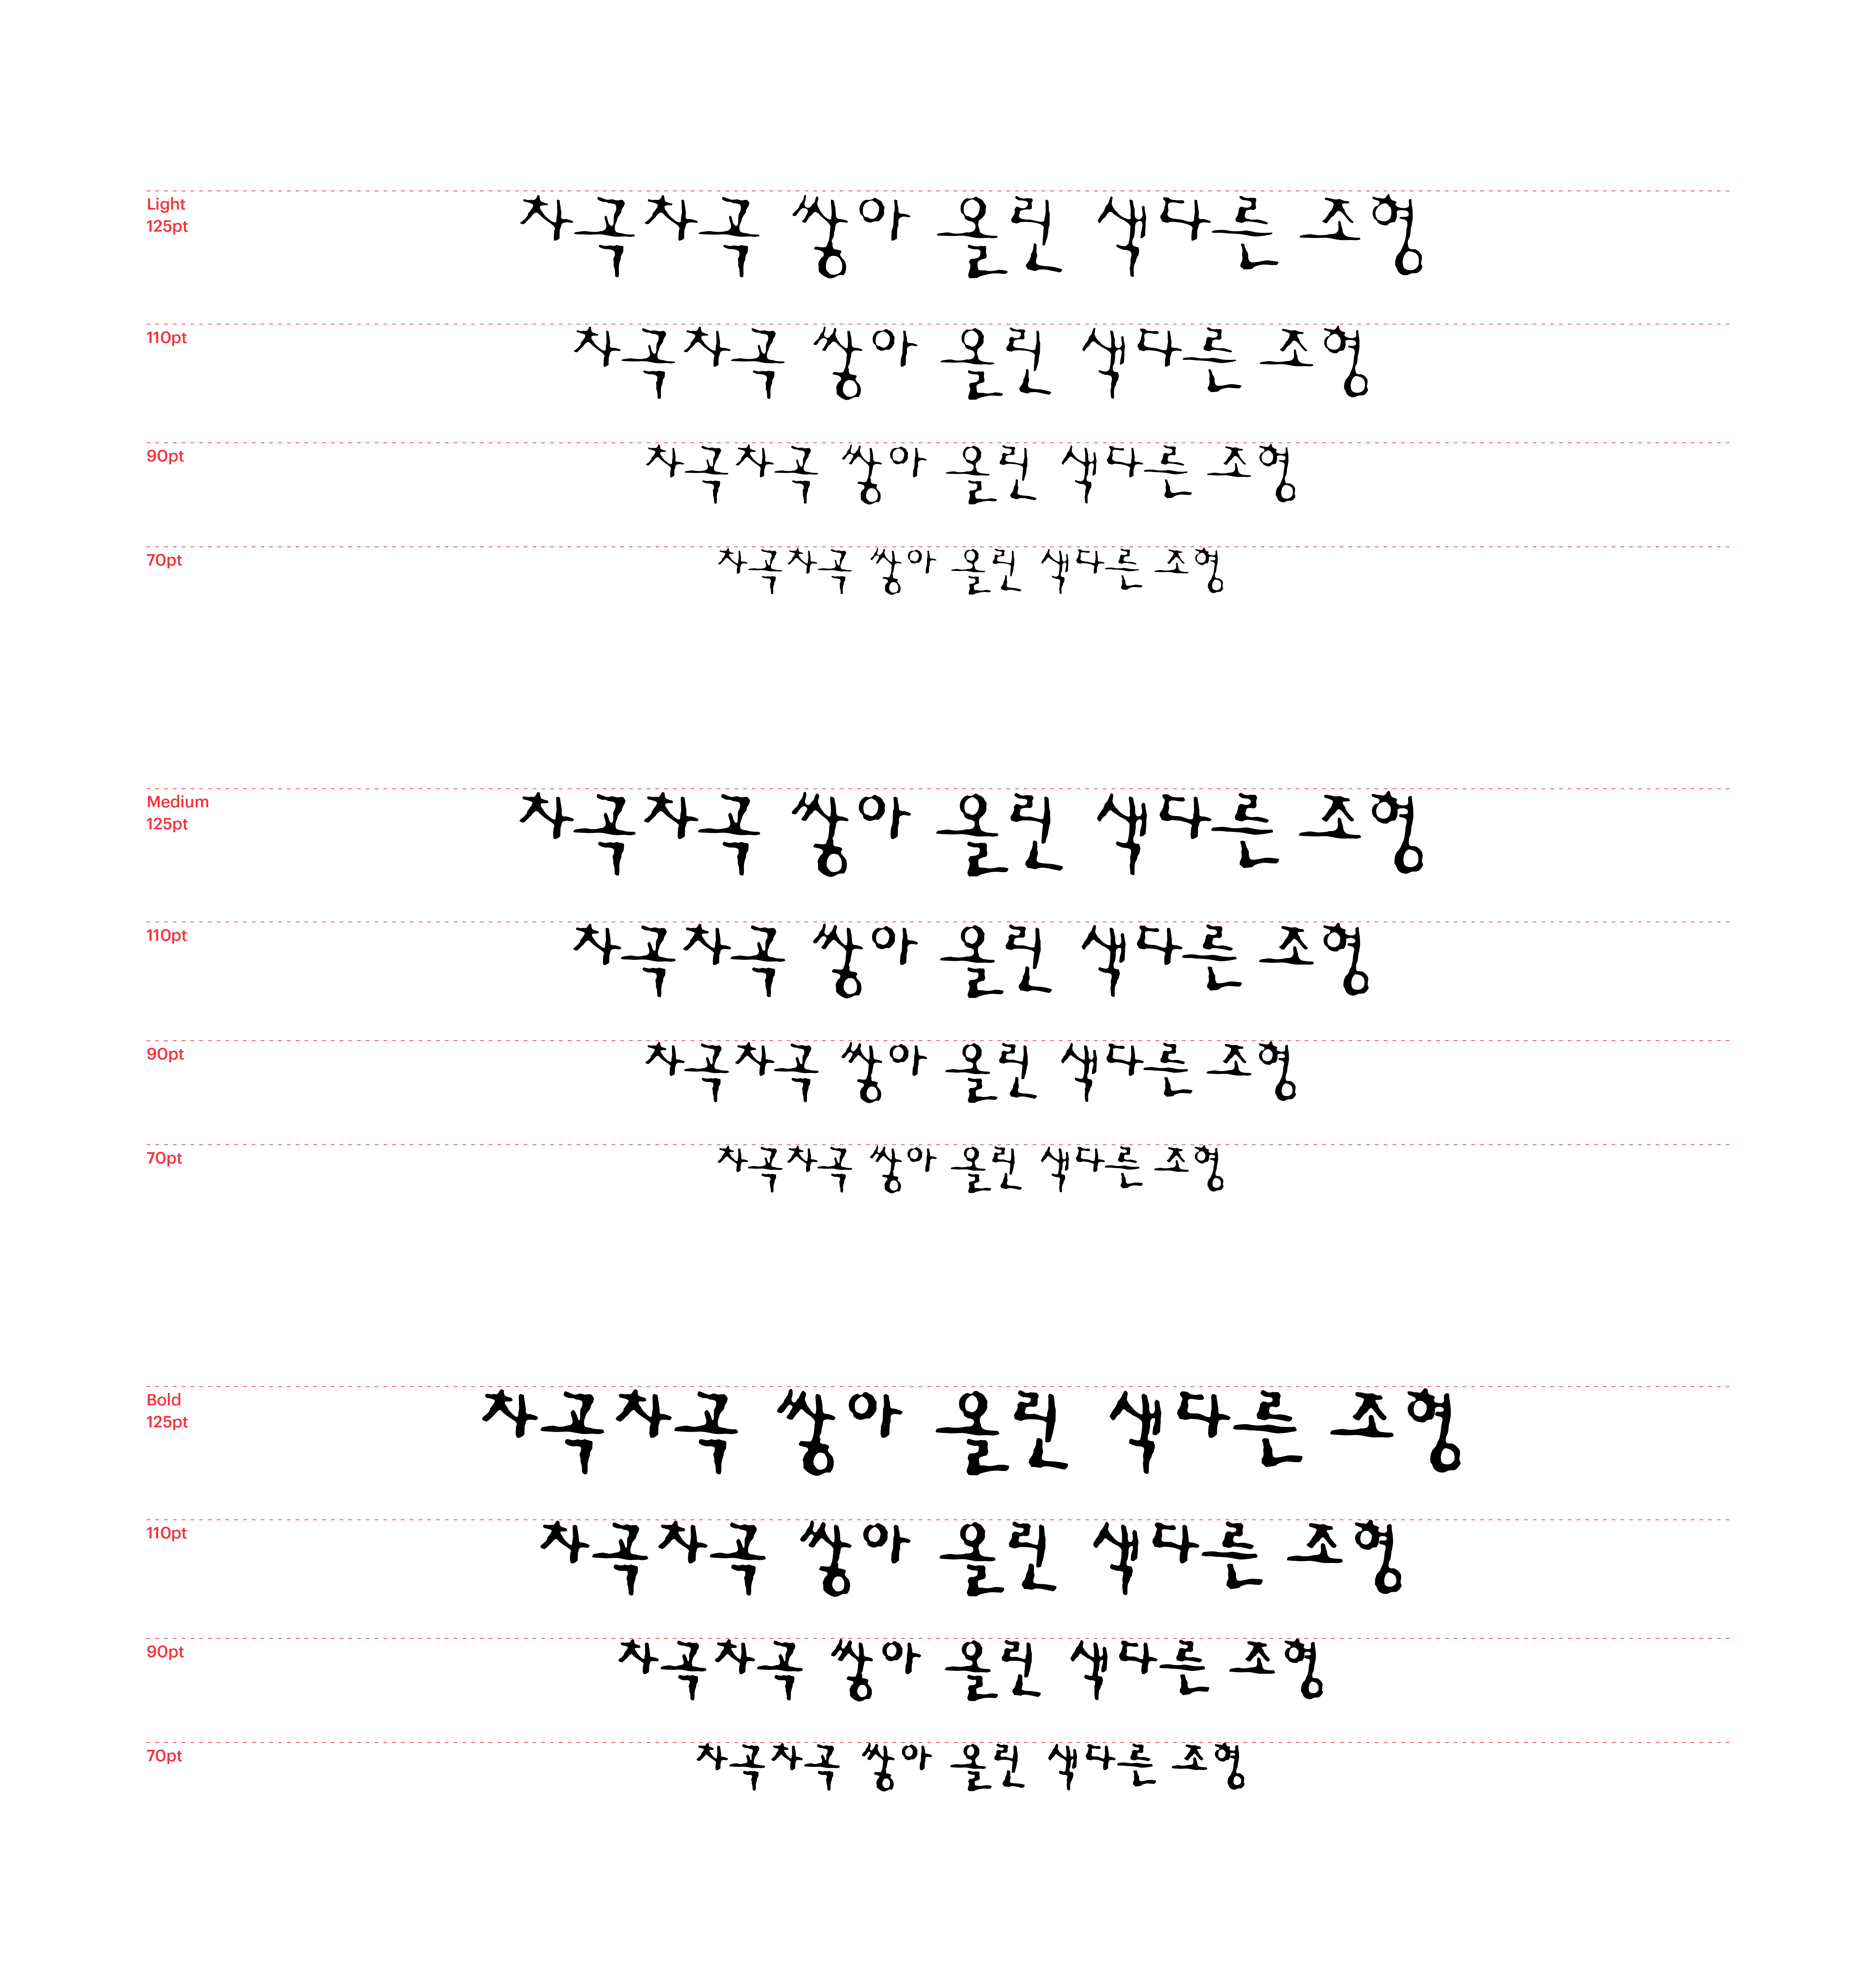 Light
125pt
차곡차곡 쌓아 올린 색다른 조형
110pt
차곡차곡 쌓아 올린 색다른 조형
90pt
차곡차곡 쌓아 올린 색다른 조형
70pt
차곡차곡 쌓아 올린 색다른 조형
Medium
125pt
차곡차곡 쌓아 올린 색다른 조형
110pt
차곡차곡 쌓아 올린 색다른 조형
90pt
차곡차곡 쌓아 올린 색다른 조형
70pt
차곡차곡 쌓아 올린 색다른 조형
Bold
125pt
차곡차곡 쌓아 올린 색다른 조형
110pt
차곡차곡 쌓아 올린 색다른 조형
90pt
차곡차곡 쌓아 올린 색다른 조형
70pt
차곡차곡 쌓아 올린 색다른 조형